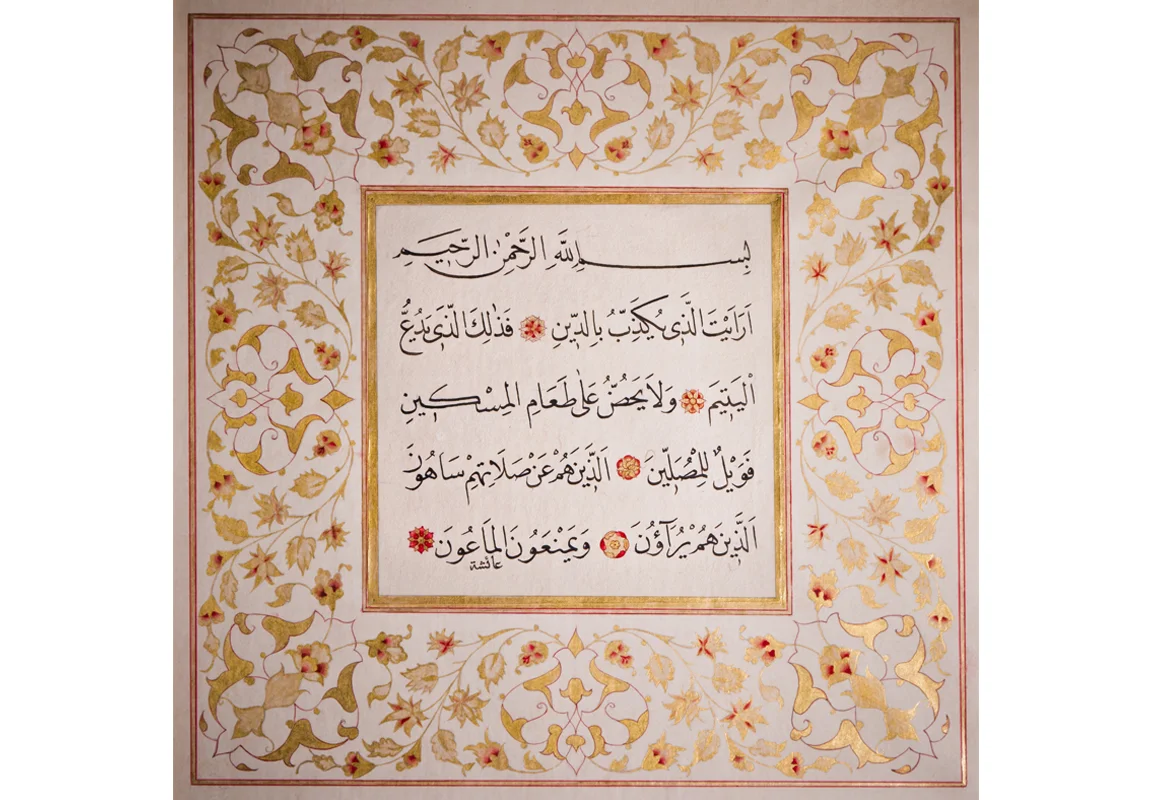 بِسْمِ اللَّهِ الرَّحْمٰنِ الرَّحِيمِ
اَرَاَيْتَ الَّذِى يُكَذِّبُ بِالدِّينِ فَذٰلِكَ الَّذِى يَدُعُّ
الْيَتِيمَ وَلَا يَحُضُّ عَلٰى طَعَامِ الْمِسْكِينِ
فَوَيْلٌ لِلْمُصَلِّينَ اَلَّذِينَ هُمْ عَنْ صَلَاتِهِمْ سَاهُونَ
اَلَّذِينَ هُمْ يُرَآؤُنَ وَيَمْنَعُونَ الْمَاعُونَ
عائشة